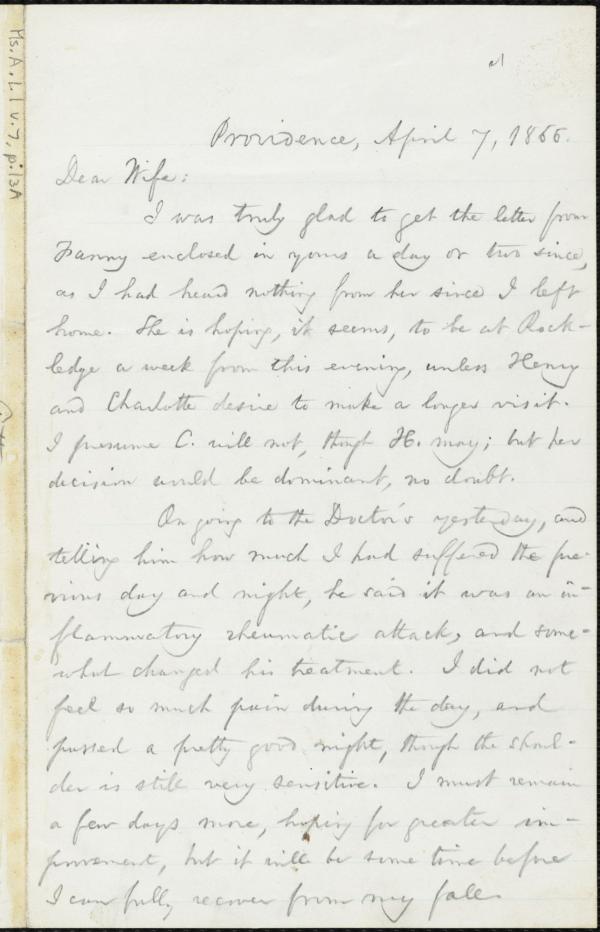 Ms. A. 1. 1 v. 7, p. 13A
Providence, April 7, 1866.
Dear Wife:
I was truly glad to get the letter from
Fanny enclosed in yours a day or two since,
as I had heard nothing from her since I left
home. She is hoping, it seems, to be at Rock-
ledge a week from this evening, unless Henry
and Charlotte desire to make a longer visit.
I presume C. will not, though H. may; but her
decision would be dominant, no doubt.
On going to the Doctor's yesterday, and
telling him how much I had suffered the pre-
vious day and night, he said it was an in-
flammatory rheumatic attack, and some-
what changed his treatment. I did not
feel so much pain during the day, and
passed a pretty good night, though the shoul-
der is still very sensitive. I must remain
a few days more, hoping for greater im-
provement, but it will be some time before
I can fully recover from my fall.